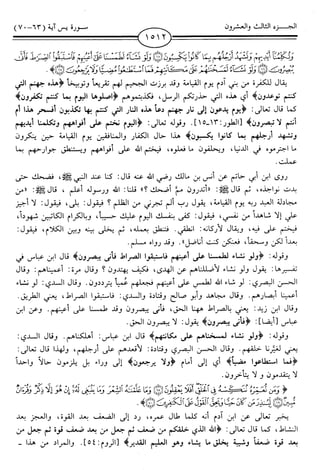 الجزء الثالث والعشرون
١٥١٢
سورة يس آية (٦٣-٧٠)
يقال للكفرة من بني آدم يوم القيامة وقد برزت الجحيم لهم تقريعاً وتوبيخاً ﴿هذه جهنم التي
كنتم توعدون﴾ أي هذه التي حذرتكم الرسل، فكذبتموهم ﴿اصلوها اليوم بما كنتم تكفرون﴾
كما قال تعالى: ﴿يوم يدعون إلى نار جهنم دعاً هذه النار التي كنتم بها تكذبون أفسحر هذا أم
أنتم لا تبصرون﴾ [الطور: ١٣-١٥]. وقوله تعالى: ﴿اليوم نختم على أفواههم وتكلمنا أيديهم
وتشهد أرجلهم بما كانوا يكسبون﴾ هذا حال الكفار والمنافقين يوم القيامة حين ينكرون
ما اجترموه في الدنيا، ويحلفون ما فعلوه، فيختم الله على أفواههم ويستنطق جوارحهم بما
عملت.
روى ابن أبي حاتم عن أنس بن مالك رضي الله عنه قال: كنا عند النبي ﷺ، فضحك حتى
بدت نواجذه، ثم قال ﷺ: «أتدرون ممَّ أضحك؟» قلنا: الله ورسوله أعلم، قال ﷺ: «من
مجادلة العبد ربه يوم القيامة، يقول رب ألم تجرني من الظلم؟ فيقول: بلى، فيقول: لا أجيز
عليَّ إلا شاهداً من نفسي، فيقول: كفى بنفسك اليوم عليك حسيباً، وبالكرام الكاتبين شهوداً،
فيختم على فيه، ويقال لأركانه: انطقي، فتنطق بعمله، ثم يخلي بينه وبين الكلام، فيقول:
بعداً لكن وسحقاً، فعنكن كنت أناضل». وقد رواه مسلم.
وقوله: ﴿ولو نشاء لطمسنا على أعينهم فاستبقوا الصراط فأنى يبصرون﴾ قال ابن عباس في
تفسيرها: يقول ولو نشاء لأضللناهم عن الهدى، فكيف يهتدون؟ وقال مرة: أعميناهم؛ وقال
الحسن البصري: لو شاء الله لطمس على أعينهم فجعلهم عُمياً يترددون. وقال السدي: لو نشاء
أعمينا أبصارهم. وقال مجاهد وأبو صالح وقتادة والسدي: فاستبقوا الصراط، يعني الطريق.
وقال ابن زيد: يعني بالصراط ههنا الحق، فأنى يبصرون وقد طمسنا على أعينهم. وعن ابن
عباس [أيضاً]: ﴿فأنى يبصرون﴾ يقول: لا يبصرون الحق.
وقوله: ﴿ولو نشاء لمسخناهم على مكانتهم﴾ قال ابن عباس: أهلكناهم. وقال السدي:
يعني لغيَّرنا خلقهم. وقال الحسن البصري وقتادة: لأقعدهم على أرجلهم، ولهذا قال تعالى:
﴿فما استطاعوا مضياً﴾ أي إلى أمام ﴿ولا يرجعون﴾ إلى وراء بل يلزمون حالاً واحداً
لا يتقدمون ولا يتأخرون.
يخبر تعالى عن ابن آدم أنه كلما طال عمره، رد إلى الضعف بعد القوة، والعجز بعد
النشاط، كما قال تعالى: ﴿الله الذي خلقكم من ضعف ثم جعل من بعد ضعف قوة ثم جعل من
بعد قوة ضعفاً وشيبة يخلق ما يشاء وهو العليم القدير﴾ [الروم: ٥٤]. والمراد من هذا -